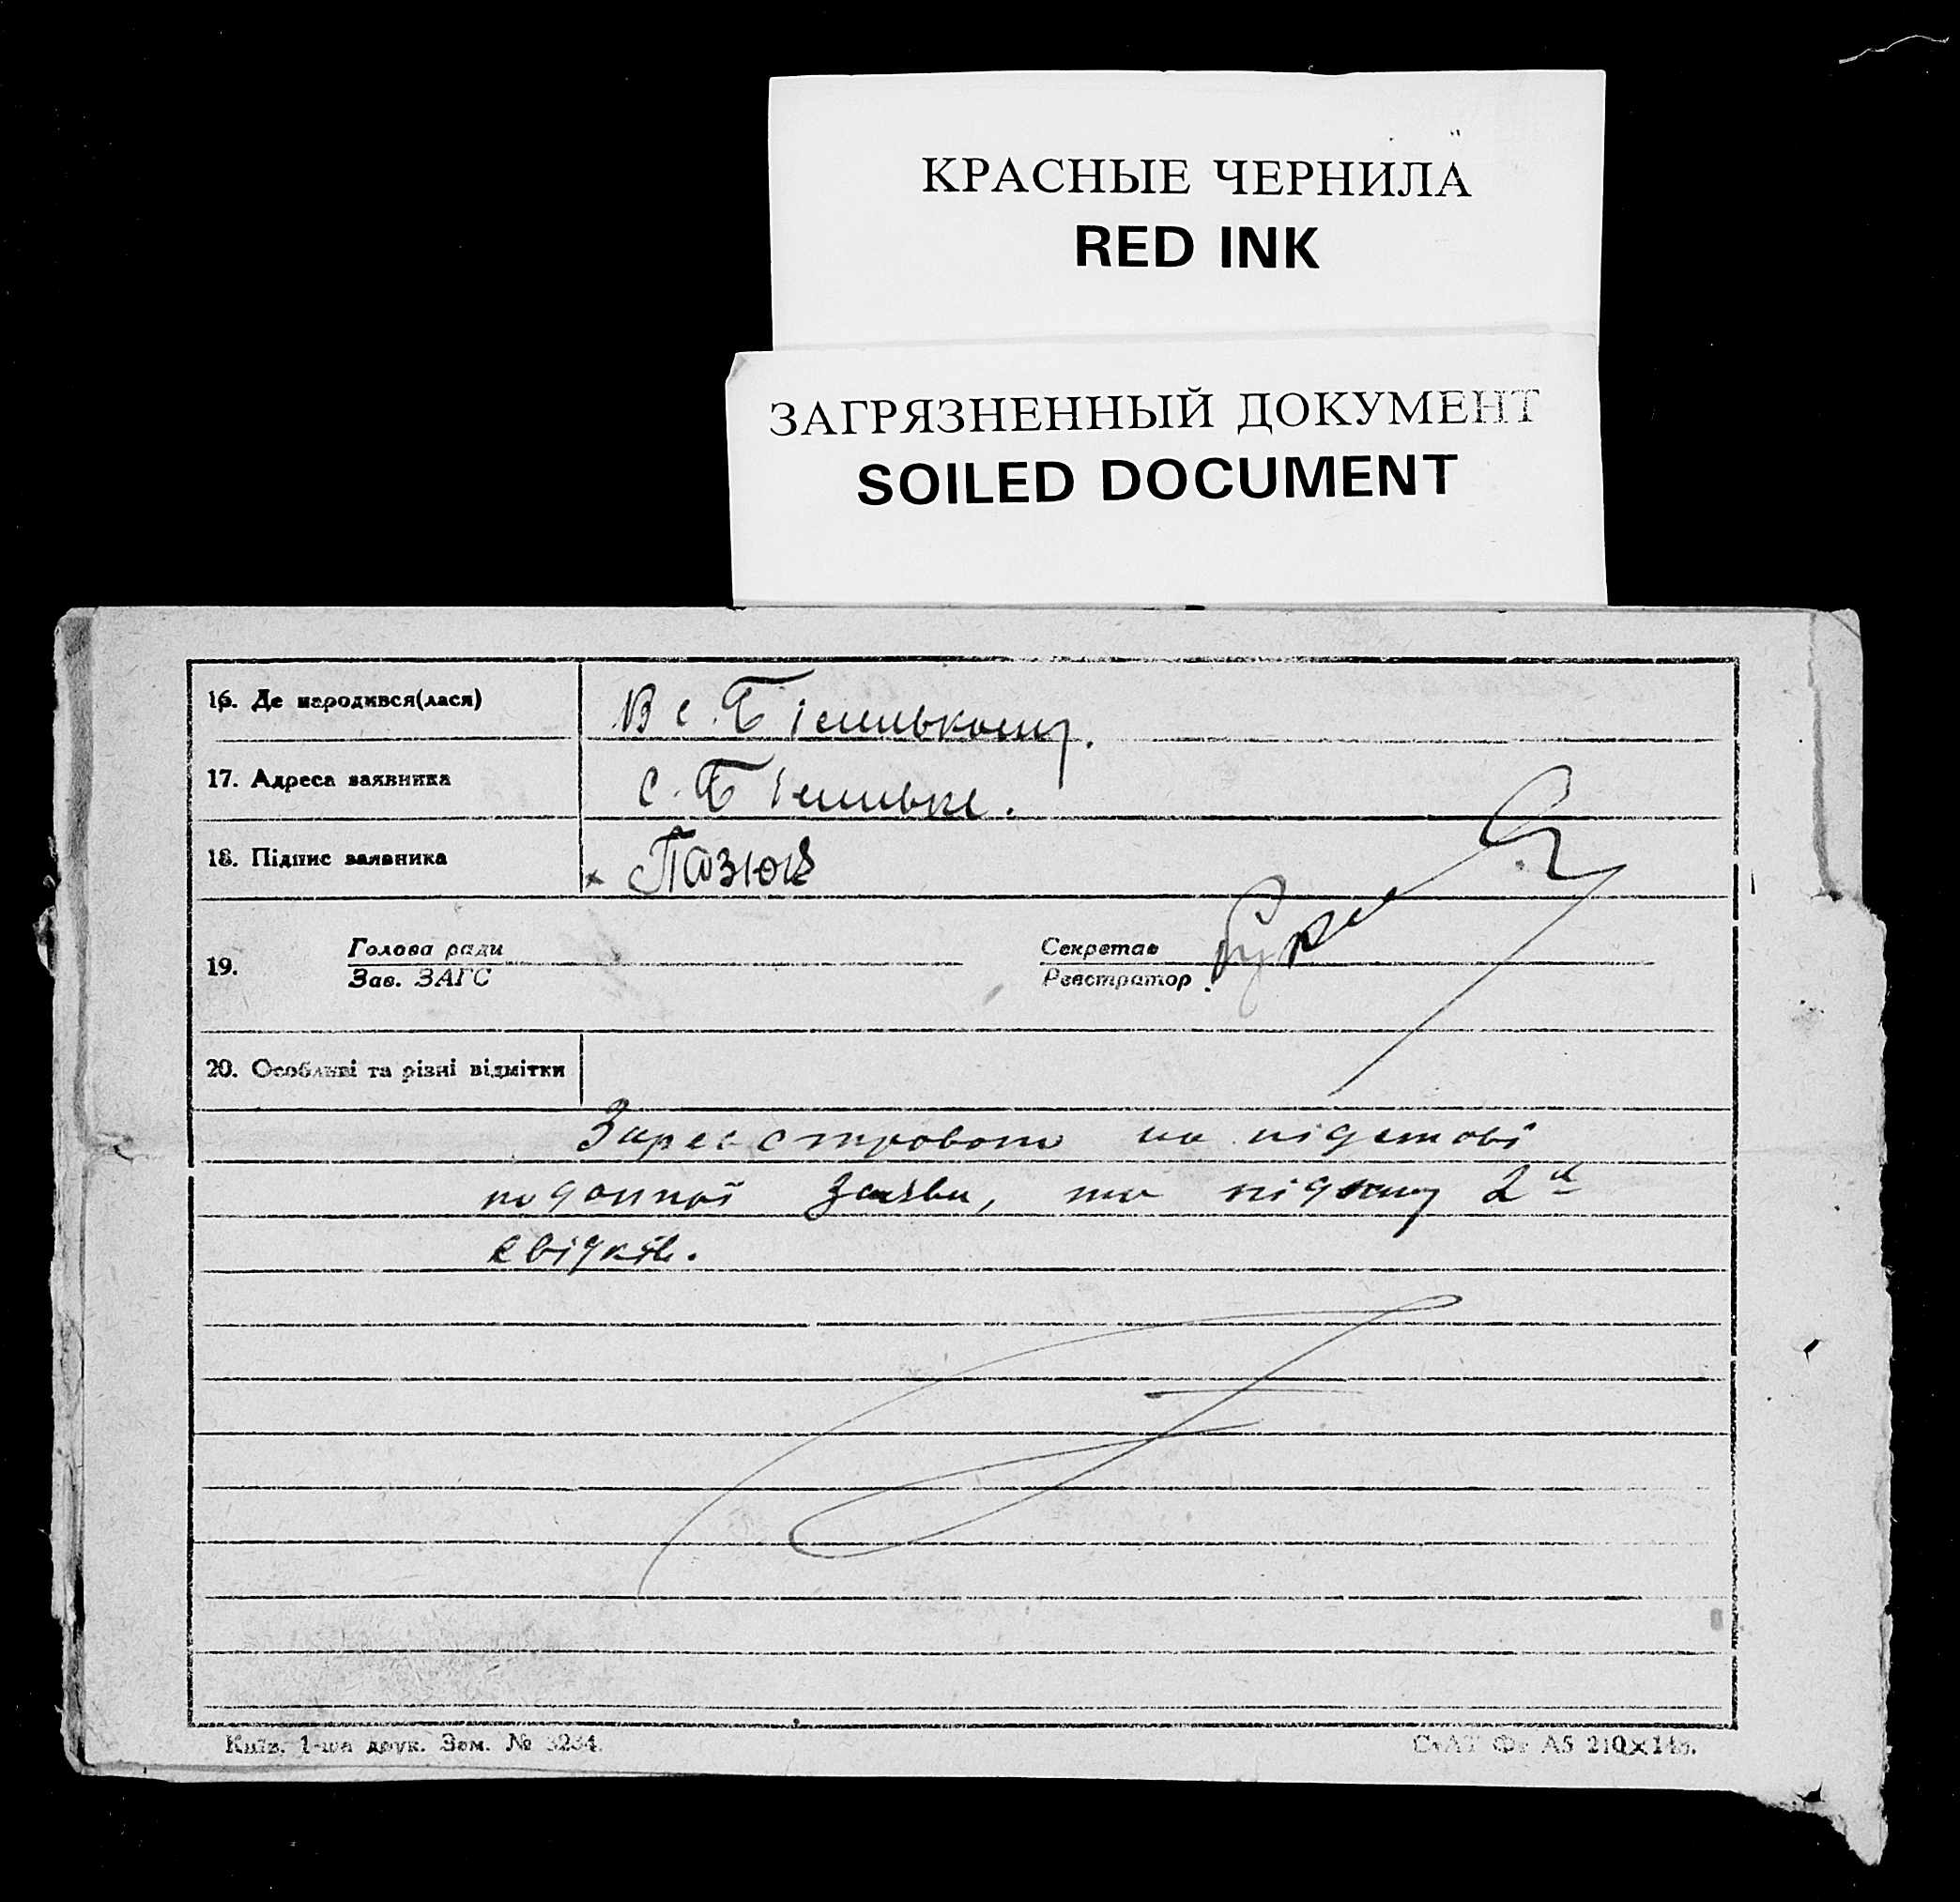 КРАСНЫЕ ЧЕРНИЛА
RED INK
ЗАГРЯЗНЕННЫЙ ДОКУМЕНТ
SOILED DOCUMENT
16. Де народився(лася)
В с.
17. Адреса заявника
с.
18. Підпис заявника
Пазюк
19.
Голова ради
Зав. ЗАГС
Секретар
Реєстратор
20. Особливі та різні відмітки
Зареєстровано на підставі
поданної заяви, та підпису 2х
свідків.
Київ. 1-ша друк. Зам. № 3234.
СтАТ Фр А5 210×148.